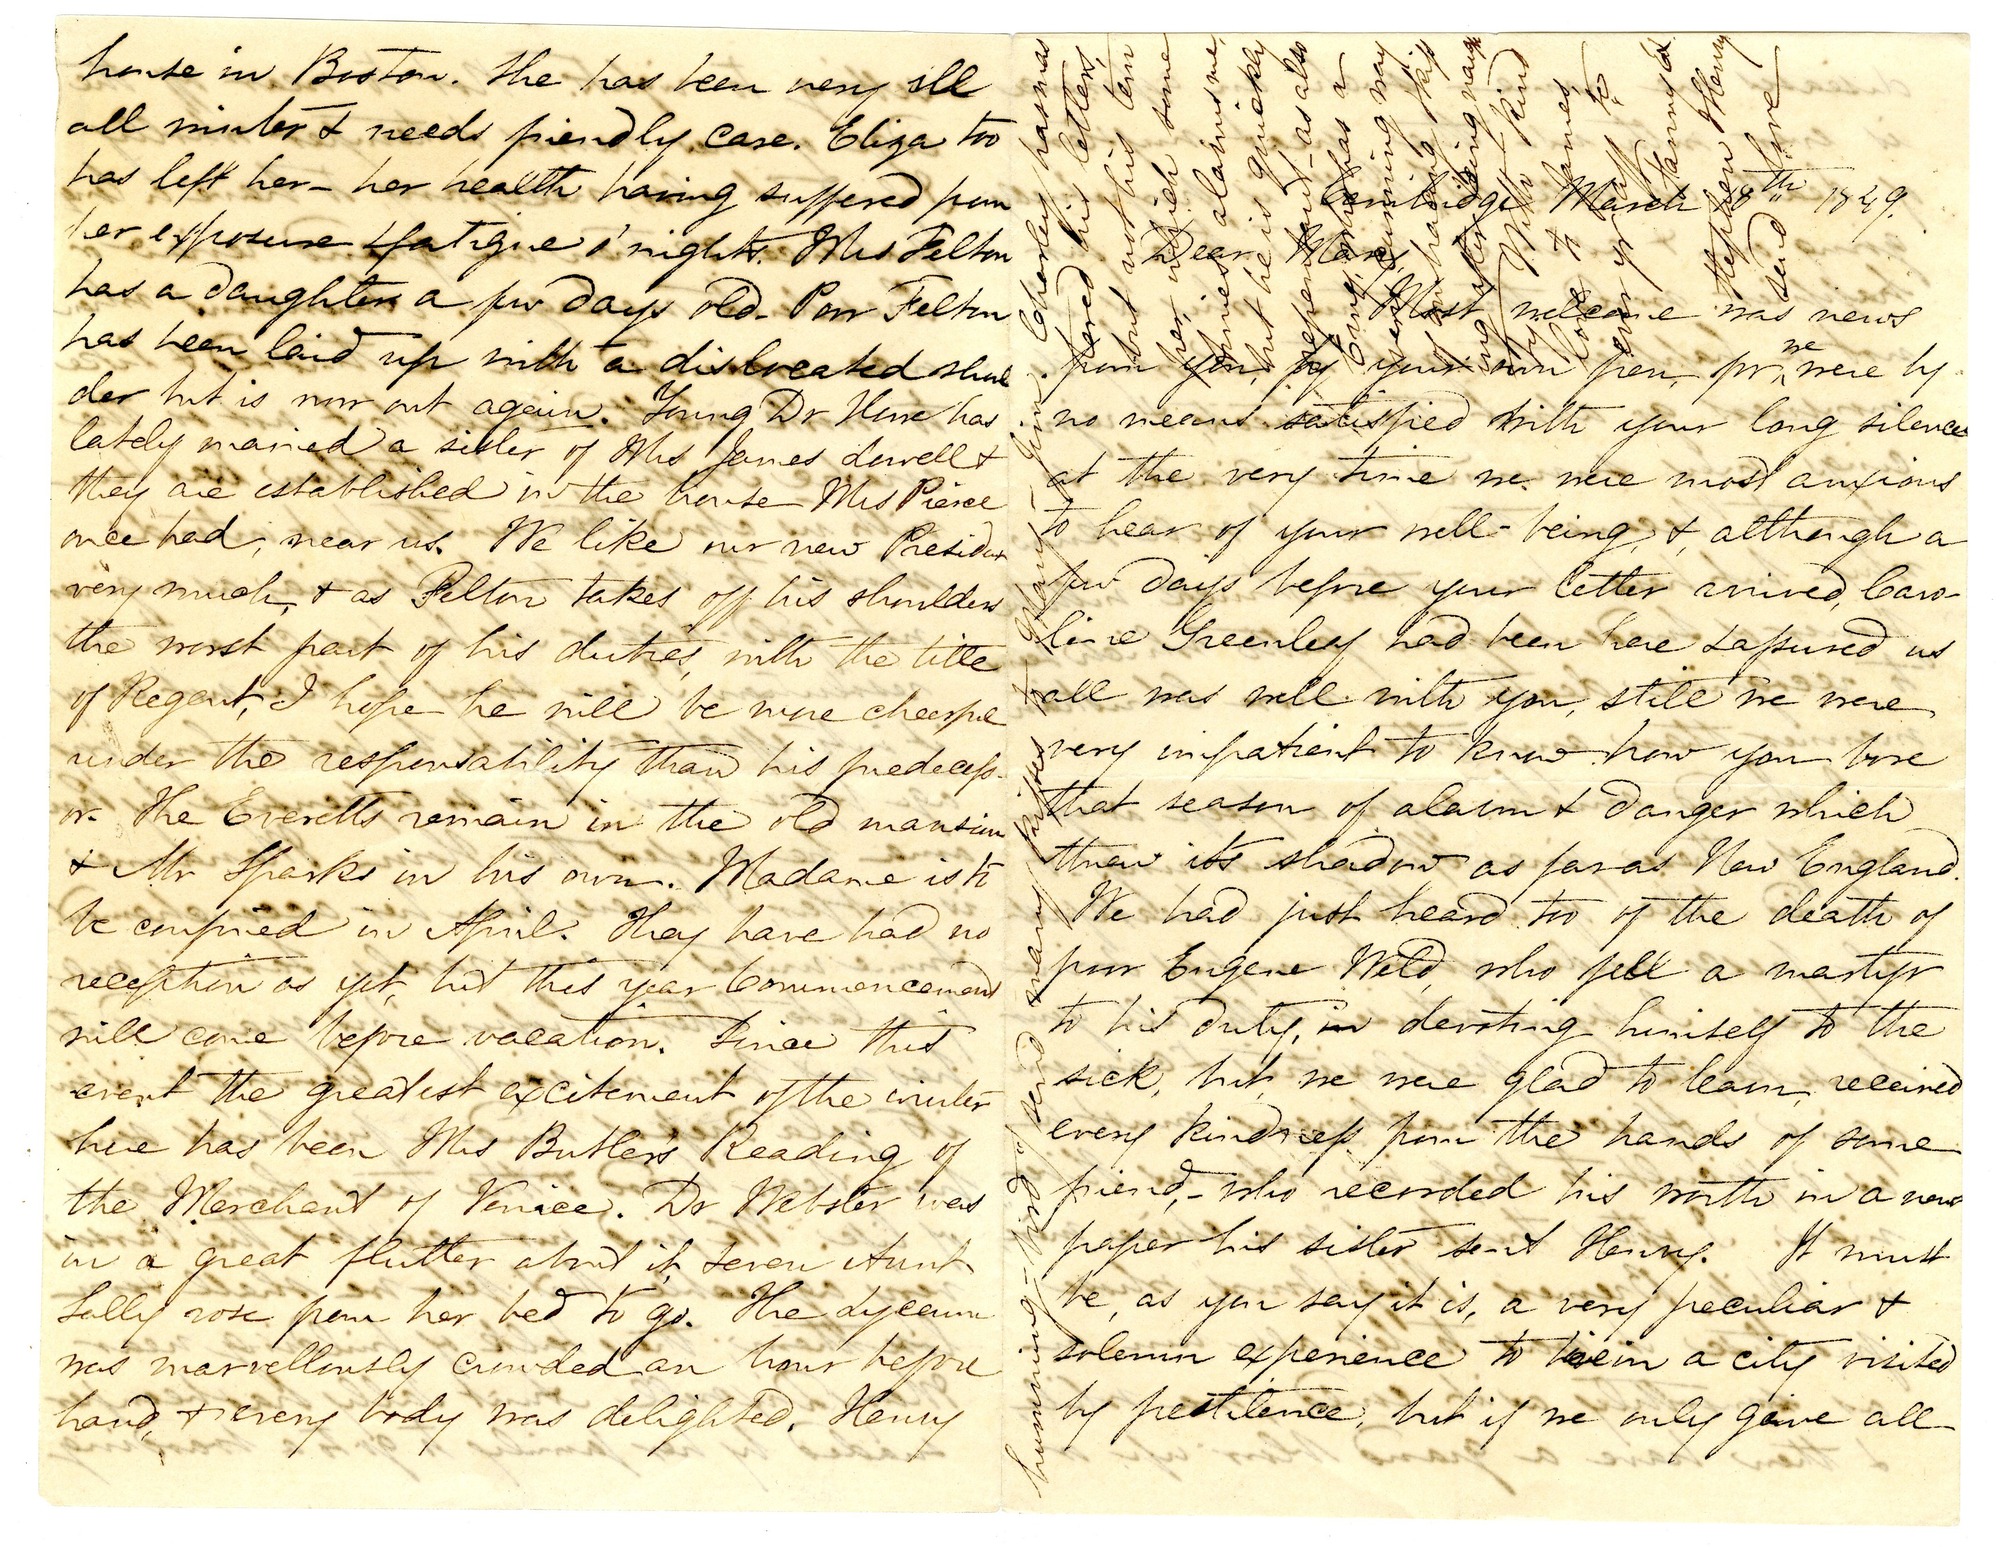 house in Boston. She has been very ill
all winter & needs friendly care. Eliza too
has left her – her health having suffered from
her exposure & fatigue o' nights. Mrs Felton
has a daughter a few days old – Poor Felton
has been laid up with a dislocated shoul
der but is now out again. Young Dr Howe has
lately married a sister of Mrs James Lowell &
they are established in the house Mrs Pierce
once had, near us. We like our new President
very much, & as Felton takes off his shoulders
the worst part of his duties, with the title
of Regent, I hope he will be more cheerful
under the responsability than his predecess-
or. The Everetts remain in the old mansion
& Mr Sparks in his own. Madame is to
be confined in April. They have had no
reception as yet, but this year Commencement
will come before vacation. Since this
event the greatest excitement of the winter
here has been Mrs Butler's Reading of
the Merchant of Venice. Dr Webster was
in a great flutter about it, & even Aunt
Sally rose from her bed to go. The Lyceum
was marvellously crowded an hour before
hand, & every body was delighted. Henry
Cambridge March 18th 1849.
Dear Mary
Most welcome was news
from you, by your own pen, for we were by
no means satisfied with your long silence
at the very time we were most anxious
to hear of your well-being, &, although a
few days before your letter arrived, Caro-
line Greenleaf had been here & assured us
all was well with you, still we were
very impatient to know how you bore
that season of alarm & danger which
threw it's shadow as far as New England.
We had just heard too of the death of
poor Eugene Weld, who fell a martyr
to his duty, in devoting himself to the
sick, but, we were glad to learn, received
every kindness from the hands of some
friend, – who recorded his worth in a news
paper his sister sent Henry. It must
be, as you say it is, a very peculiar &
solemn experience to be in a city visited
by pestilence, but if we only gave all
humming-bird & send many kisses to Mary – Jim. Charley has mas
tered his letters,
but not his tem
per, which some
times alarms me,
but he is quickly
repentant – as also
Erny, who has a
very winning way
of
With kind
love to James,
ever yrs aff
Fanny
Stephen & Henry
send love